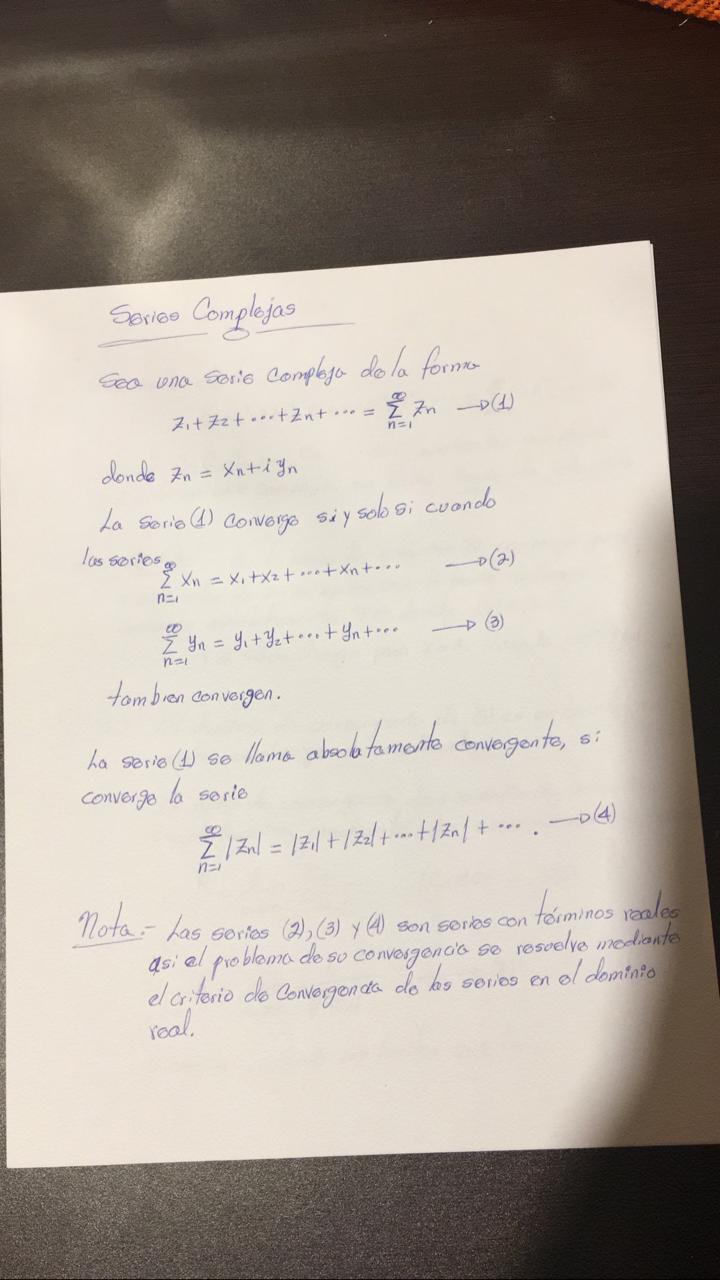 Series Complejas
Sea una serie compleja de la forma
z₁+z₂+...+zₙ+... = ∑ₙ₌₁^∞ zₙ →(1)
donde zₙ = xₙ+iyₙ
La serie (1) converge si y solo si cuando
las series
∑ₙ₌₁^∞ xₙ = x₁+x₂+...+xₙ+... →(2)
∑ₙ₌₁^∞ yₙ = y₁+y₂+...+yₙ+... →(3)
tambien convergen.
La serie (1) se llama absolutamente convergente, si
converge la serie
∑ₙ₌₁^∞ |zₙ| = |z₁|+|z₂|+...+|zₙ|+... . →(4)
Nota.- Las series (2), (3) y (4) son series con términos reales
asi el problema de su convergencia se resuelve mediante
el criterio de Convergencia de las series en el dominio
real.